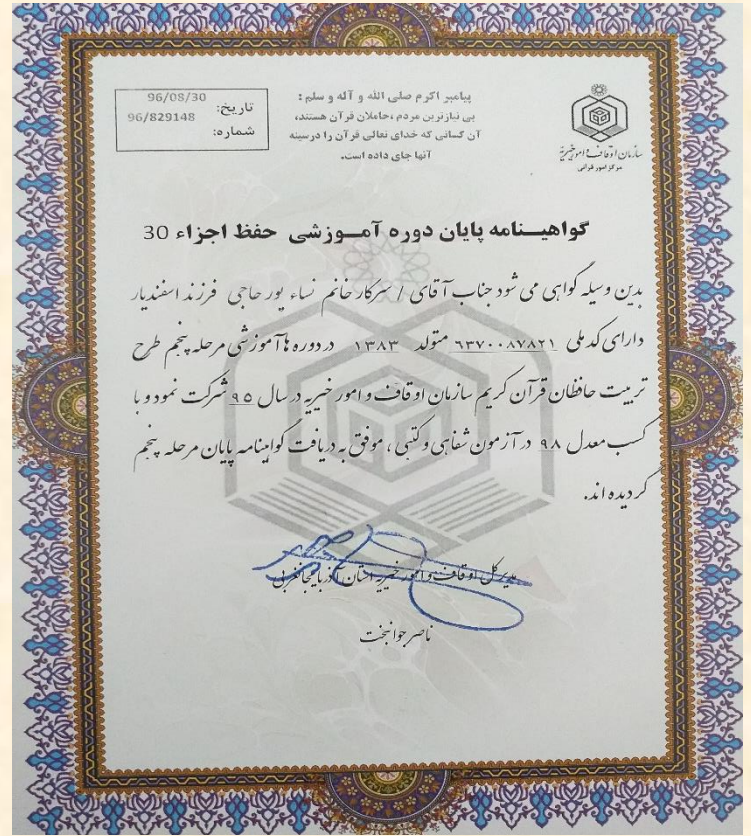 پیامبر اکرم صلی الله و آله و سلم :
بی نیازترین مردم ،حاملان قرآن هستند،
آن کسانی که خدای تعالی قرآن را درسینه
آنها جای داده است.
تاریخ: 96/08/30
شماره: 96/829148
سازمان اوقاف و امور خیریه
مرکز امور قرآنی
گواهینامه پایان دوره آموزشی حفظ اجزاء 30
بدین وسیله گواهی می شود جناب آقای / سرکار خانم نساء پور حاجی فرزند اسفندیار
دارای کد ملی ۶۳۷۰۰۸۷۸۲۱ متولد ۱۳۸۳ در دوره هاآموزشی مرحله پنجم طرح
تربیت حافظان قرآن کریم سازمان اوقاف و امور خیریه در سال ۹۵ شرکت نمود و با
کسب معدل ۹۸ در آزمون شفاهی و کتبی ، موفق به دریافت گواهینامه پایان مرحله پنجم
گردیده اند.
مدیر کل اوقاف و امور خیریه استان آذربایجانغربی
ناصر جوانبخت